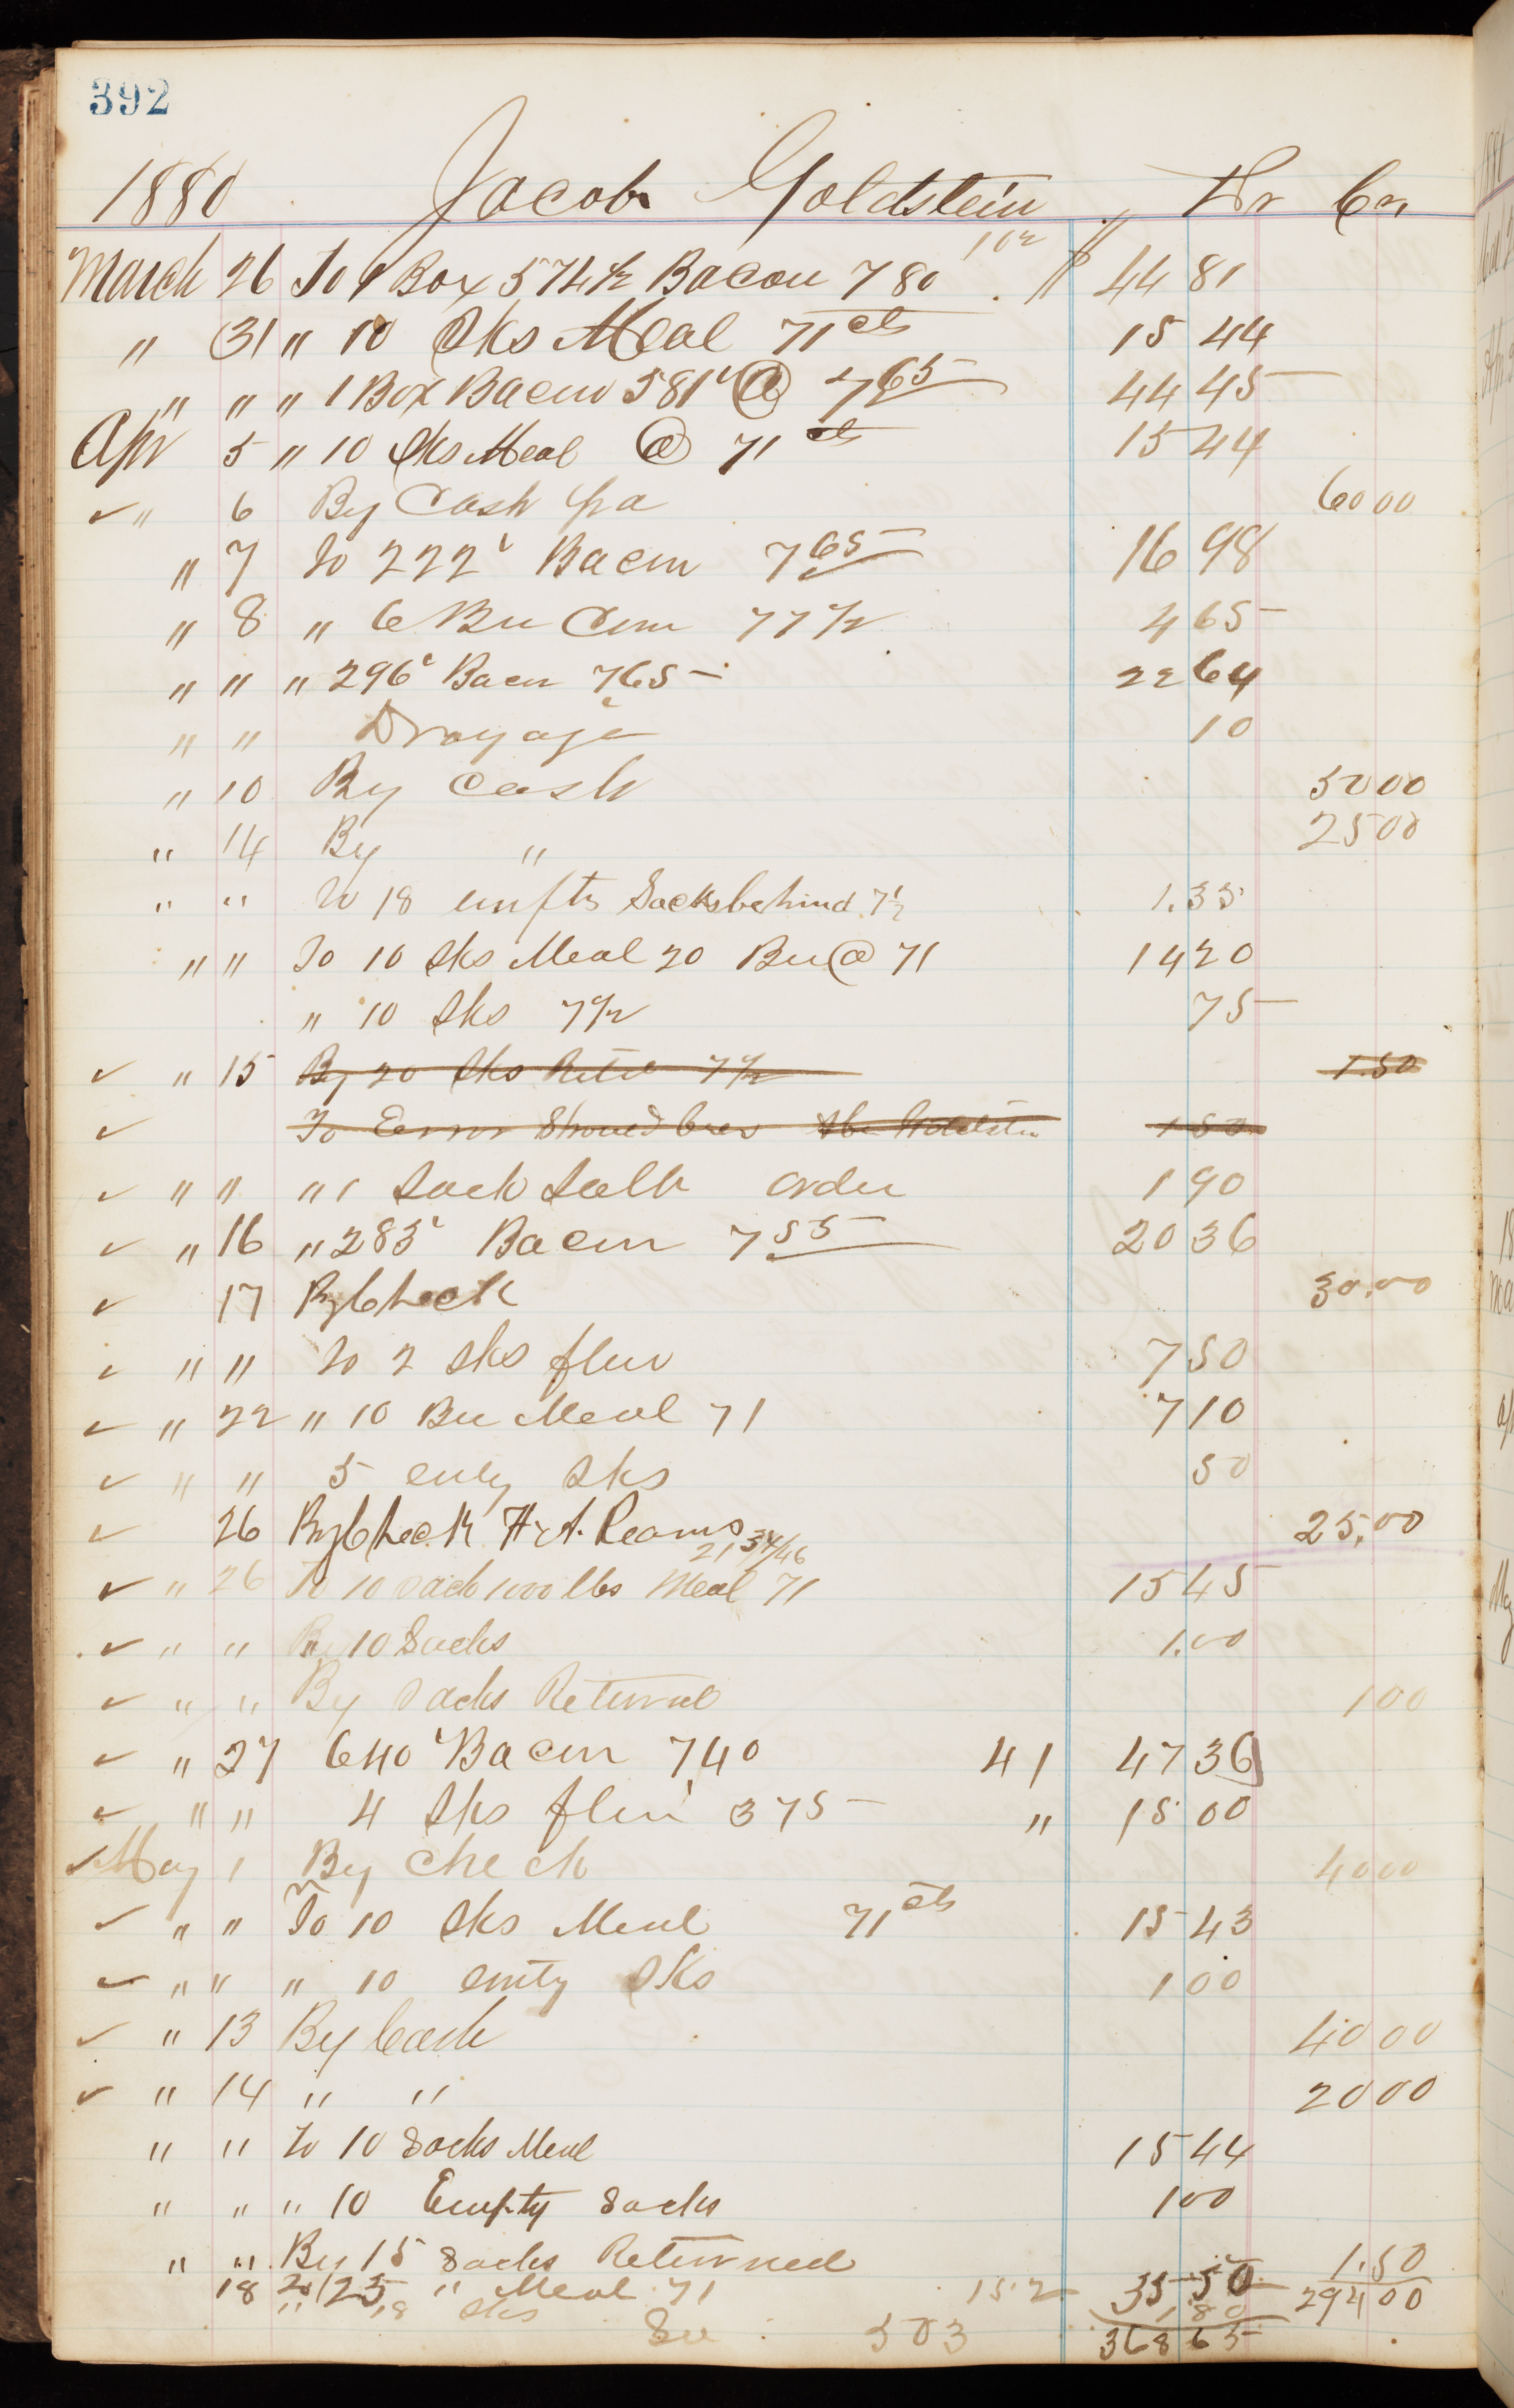 392
1880 Jacob Goldstein Dr Cr
March 26 To 1 Box 574½ Bacon 7 80 $ 44 81
" 31 " 10 Sks Meal 71 cts 15 44
" " " 1 Box Bacon 581 @ 7 65 44 45
Apr 5 " 10 Sks Meal @ 71 cts 15 44
" 6 By Cash 60 00
" 7 To 222 Bacon 7 65 16 98
" 8 " 6 Bu Corn 77½ 4 65
" " " 296 Bacon 765 22 64
" " Drayage 10
" 10 By Cash 50 00
" 14 By " 25 00
" " To 18 Sacks behind 7½ 1.35
" " To 10 Sks Meal 20 Bu @ 71 14 20
" 10 Sks 7½ 75
" 15 By 20 Sks Retd 7½ 1.50
To Error 1 50
" " " 1 Sack Salt order 1 90
" " 16 " 283 Bacon 7 55 20 36
17 By Check 30.00
" " To 2 Sks flur 7 50
" 22 " 10 Bu Meal 71 7 10
" " 5 emty Sks 50
26 By Check Reams 25.00
" 26 To 10 Sack 1000 lbs Meal 71 15 45
" " 10 Sacks 1.00
" " By Sacks Returned 1 00
" 27 640 Bacon 740 41 47 36
" " 4 Sks flur 375 " 15 00
May 1 By Check 40 00
" " To 10 Sks Meal 71 cts 15 43
" " " 10 emty Sks 1 00
" 13 By Cash 40 00
" 14 " " 20 00
" " To 10 Sacks Meal 15 44
" " " 10 Empty Sacks 1 00
" " By 15 Sacks Returned 1.50
18 " Meal 71 35 50 294 00
" 18 Sks 1 80
503 368 65